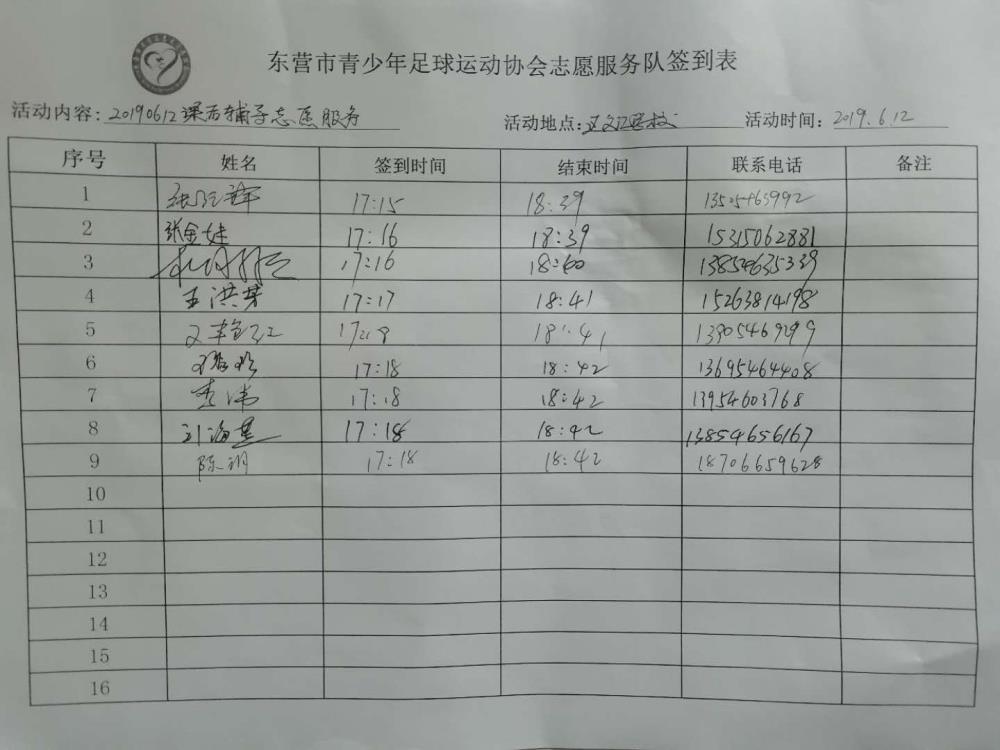 东营市青少年足球运动协会志愿服务队签到表
活动内容: 20190612课后辅导志愿服务 活动地点: 学校 活动时间: 2019.6.12
序号 姓名 签到时间 结束时间 联系电话 备注
1 17:15 18:39 13505465992
2 张金娃 17:16 18:39 15315062881
3 17:16 18:40 13854635339
4 王洪芳 17:17 18:41 15263814198
5 文艳红 17:18 18:41 13905469299
6 17:18 18:42 13695464408
7 李伟 17:18 18:42 13954603768
8 刘海星 17:18 18:42 13854656167
9 陈明 17:18 18:42 18706659628
10
11
12
13
14
15
16